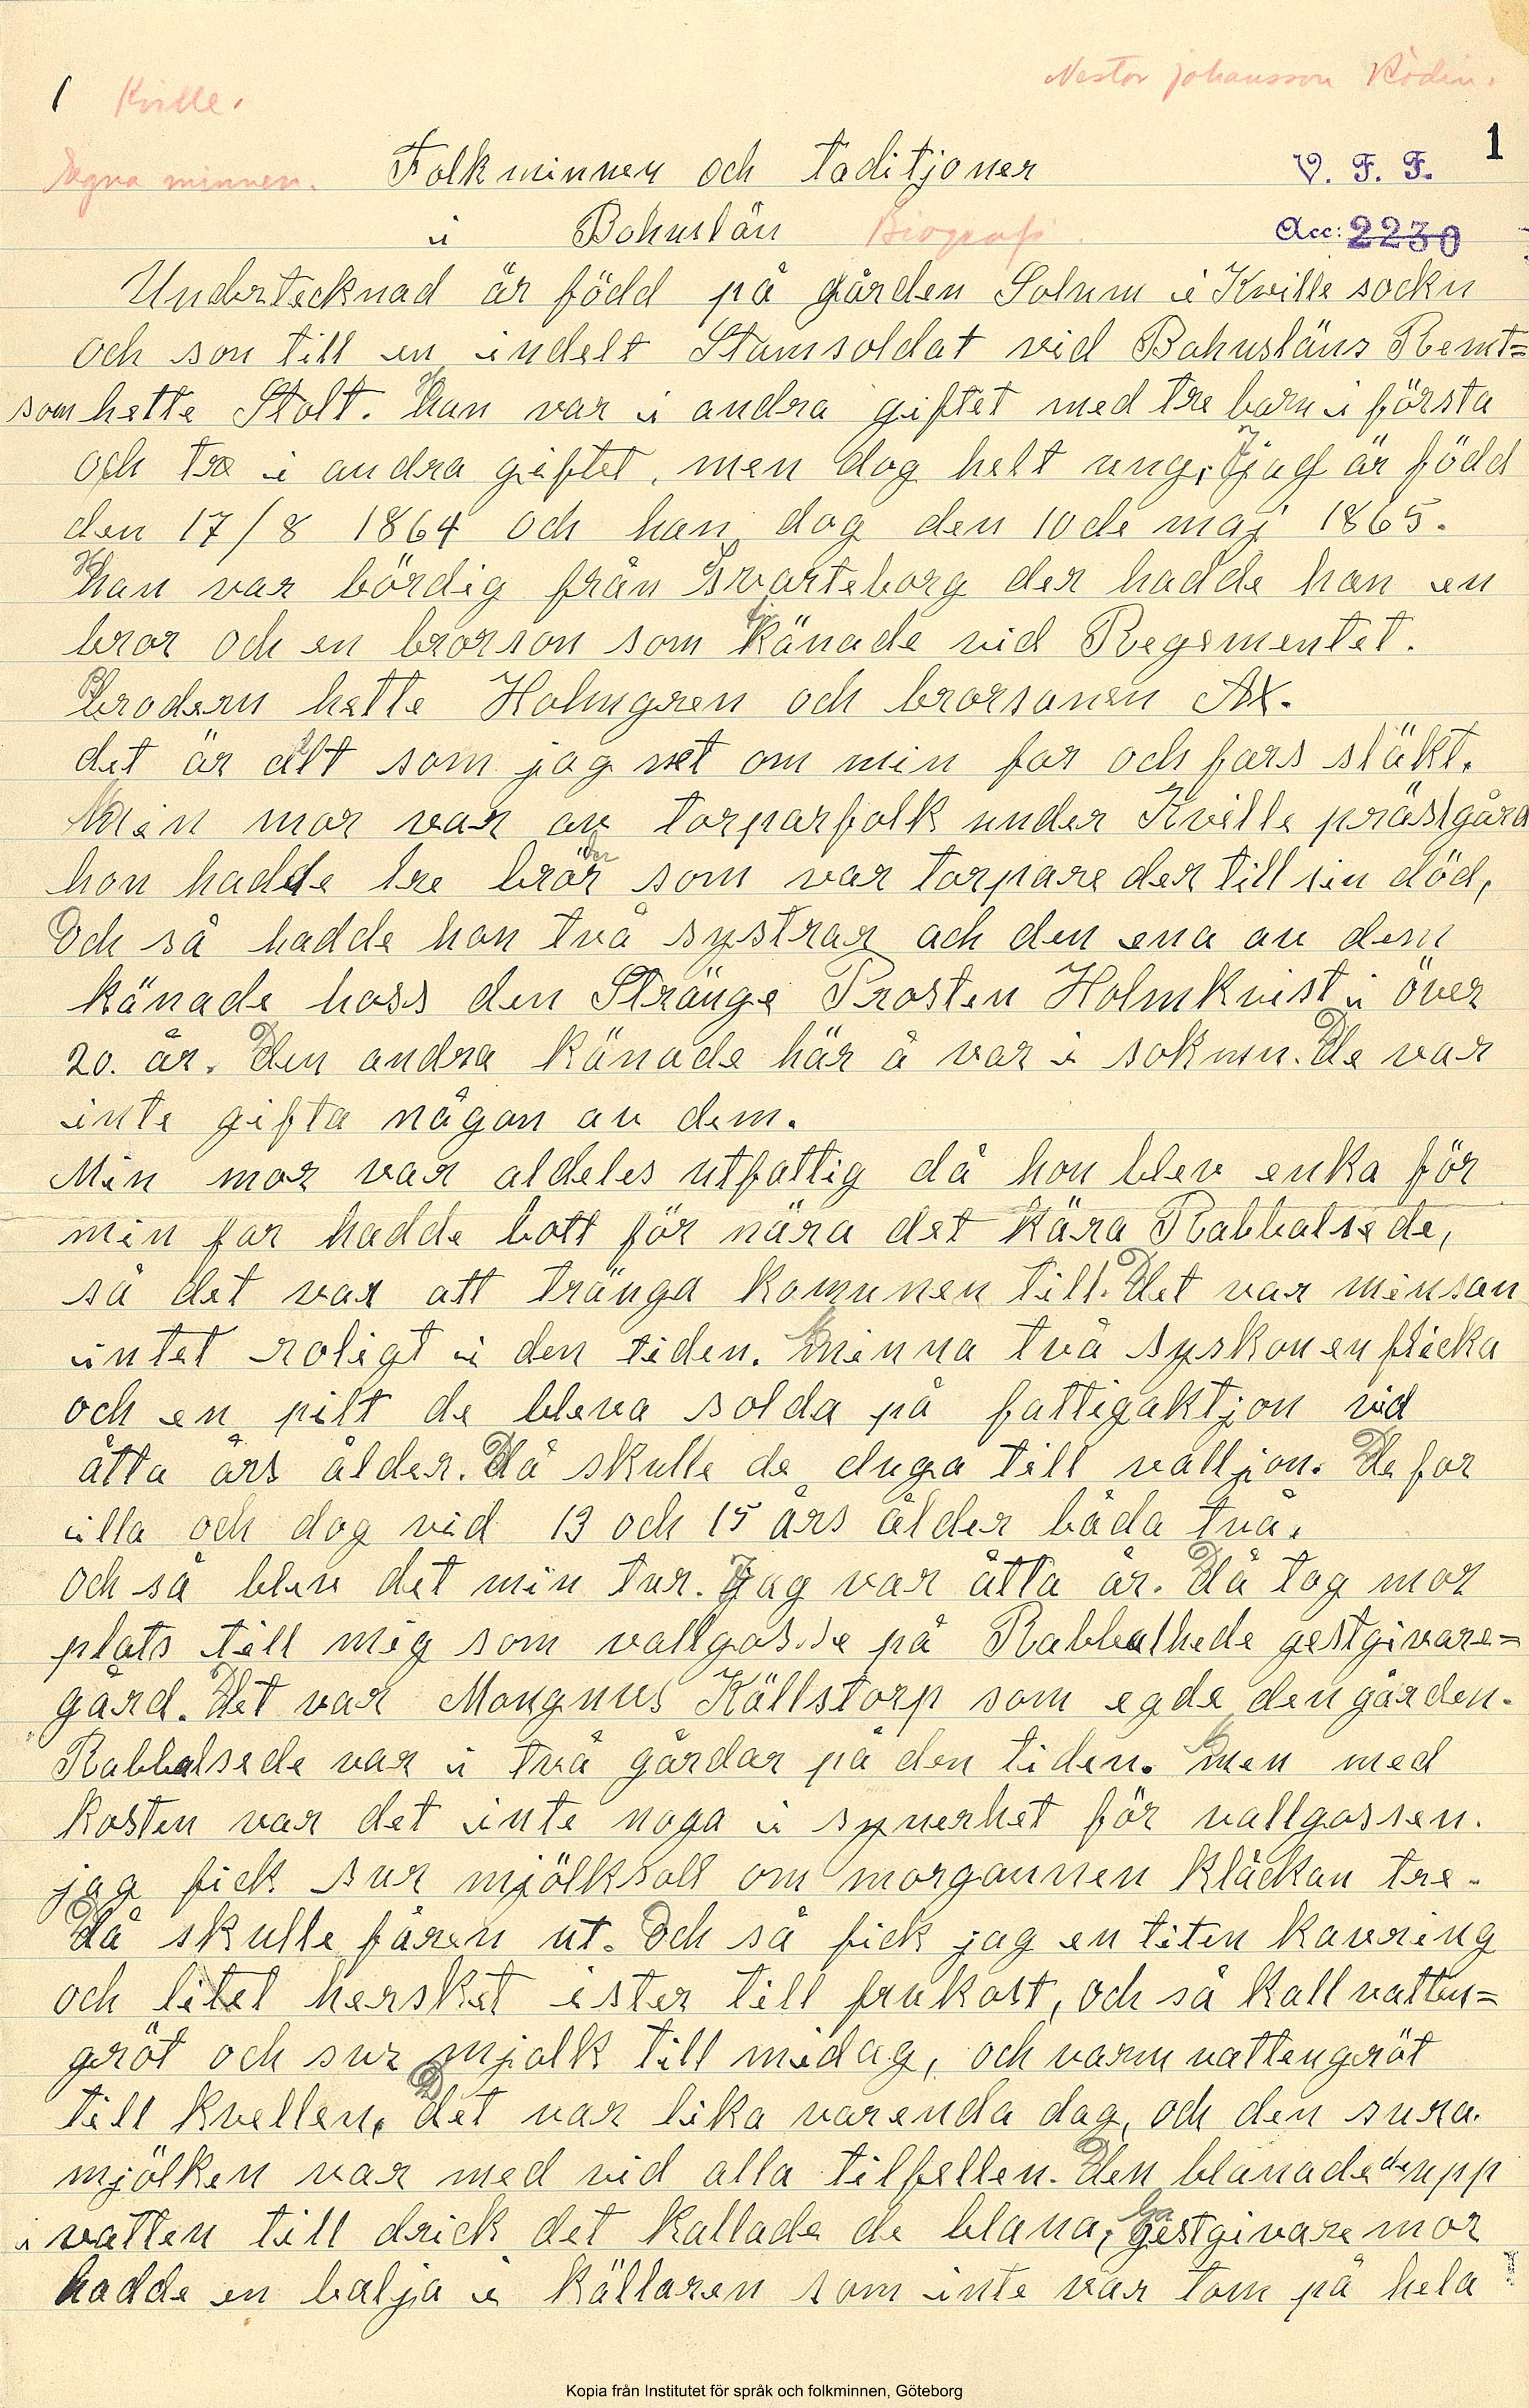 1 Kville.
Nestor Johansson Rödin.
1
Egna minnen.
Folkminnen och taditjoner
V. F. F.
i Bohuslän
Biografi.
Acc: 2230
Undertecknad är född på gården Solum i Kville sockn
och son till en indelt Stamsoldat vid Bohusläns Remt=
som hette Stolt. Han var i andra giftet med tre barn i första
och tre i andra giftet, men dog helt ung, Jag är född
den 17/8 1864 och han dog den 10de maj 1865.
Han var bördig från Svarteborg der hadde han en
bror och en brorson som tjänade vid Regementet.
Brodern hette Holmgren och brorsonen Ax.
det är alt som jag vet om min far och fars släkt.
Min mor var av torparfolk under Kville prästgård
hon hadde tre bröder som var torpare der till sin död,
Och så hadde hon två systrar och den ena av dem
känade hoss den Stränge Prosten Holmkvist i över
20. år. Den andra känade här å var i soknen. De var
inte gifta någon av dem.
Min mor var aldeles utfattig då hon blev enka för
min far hadde bott för nära det kära Rabbalsede,
så det var att tränga komunen till. Det var minsan
intet roligt i den tiden. Minna två syskon en flicka
och en pilt de bleva solda på fattigaktjon vid
åtta års ålder. Då skulle de duga till valljon. De for
illa och dog vid 13 och 15 års ålder båda två.
och så blev det min tur. Jag var åtta år. Då tog mor
plats till mig som vallgosse på Rabbalhede gestgivare=
gård. Det var Mongnus Källstorp som egde den gården.
Rabbalsede var i två gårdar på den tiden. Men med
kosten var det inte noga i synerhet för vallgossen.
jag fick sur mjölksoll om morgonnen kläckan tre.
Då skulle fåren ut. Och så fick jag en liten kavring
och litet hersket ister till frukost, och så kall vatten=
gröt och sur mjolk till midag, och varm vattengröt
till kvellen. Det var lika varenda dag, och den sura
mjölken var med vid alla tilfellen. Den blanade de upp
i vatten till drick det kallade de blana, gestgivare mor
hadde en balja i källaren som inte var tom på hela
Kopia från Institutet för språk och folkminnen, Göteborg